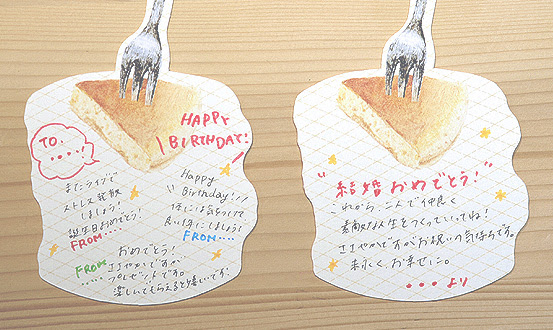 HAPPY
BIRTHDAY!
TO.
.....
またライブで
ストレス発散
しましょう!
誕生日おめでとう!
FROM....
Happy
Birthday!
体には気をつけて
良い1年にしましょう!
FROM....
おめでとう!
ささやかですが
プレゼントです。
楽しんでもらえると嬉しいです!
FROM
"結婚おめでとう!"
これから、二人で仲良く
素敵な人生をつくっていってね!
ささやかですがお祝いの気持ちです。
末永く、お幸せに。
・・・より